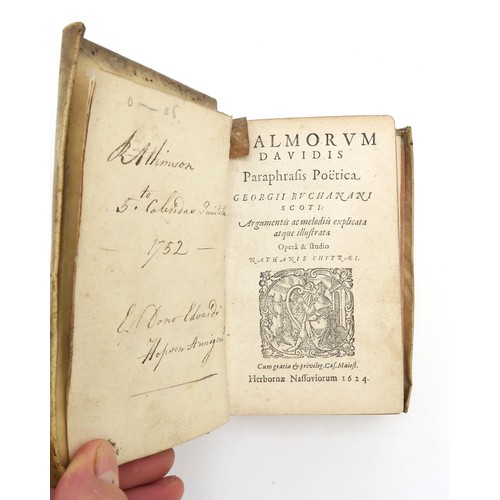 0 — 06
R Atkinson
5to Calendas
— 1752 —
Ex Dono Edvardi
Hopson Armigeri
ALMORVM
DAVIDIS
Paraphrasis Poëtica
GEORGII BVCHANANI
SCOTI:
Argumentis ac melodiis explicata
atque illustrata
Operâ & studio
NATHANIS CHYTRÆI.
Cum gratia & privileg. Cæs. Maiest.
Herbornæ Nassoviorum 1624.